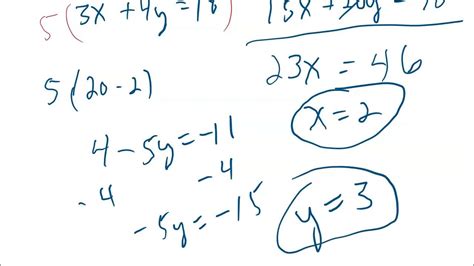 5(3x+4y=18)
15x+20y=90
23x = 46
5(20-2)
x=2
4-5y=-11
-4 -4
-5y=-15
y=3